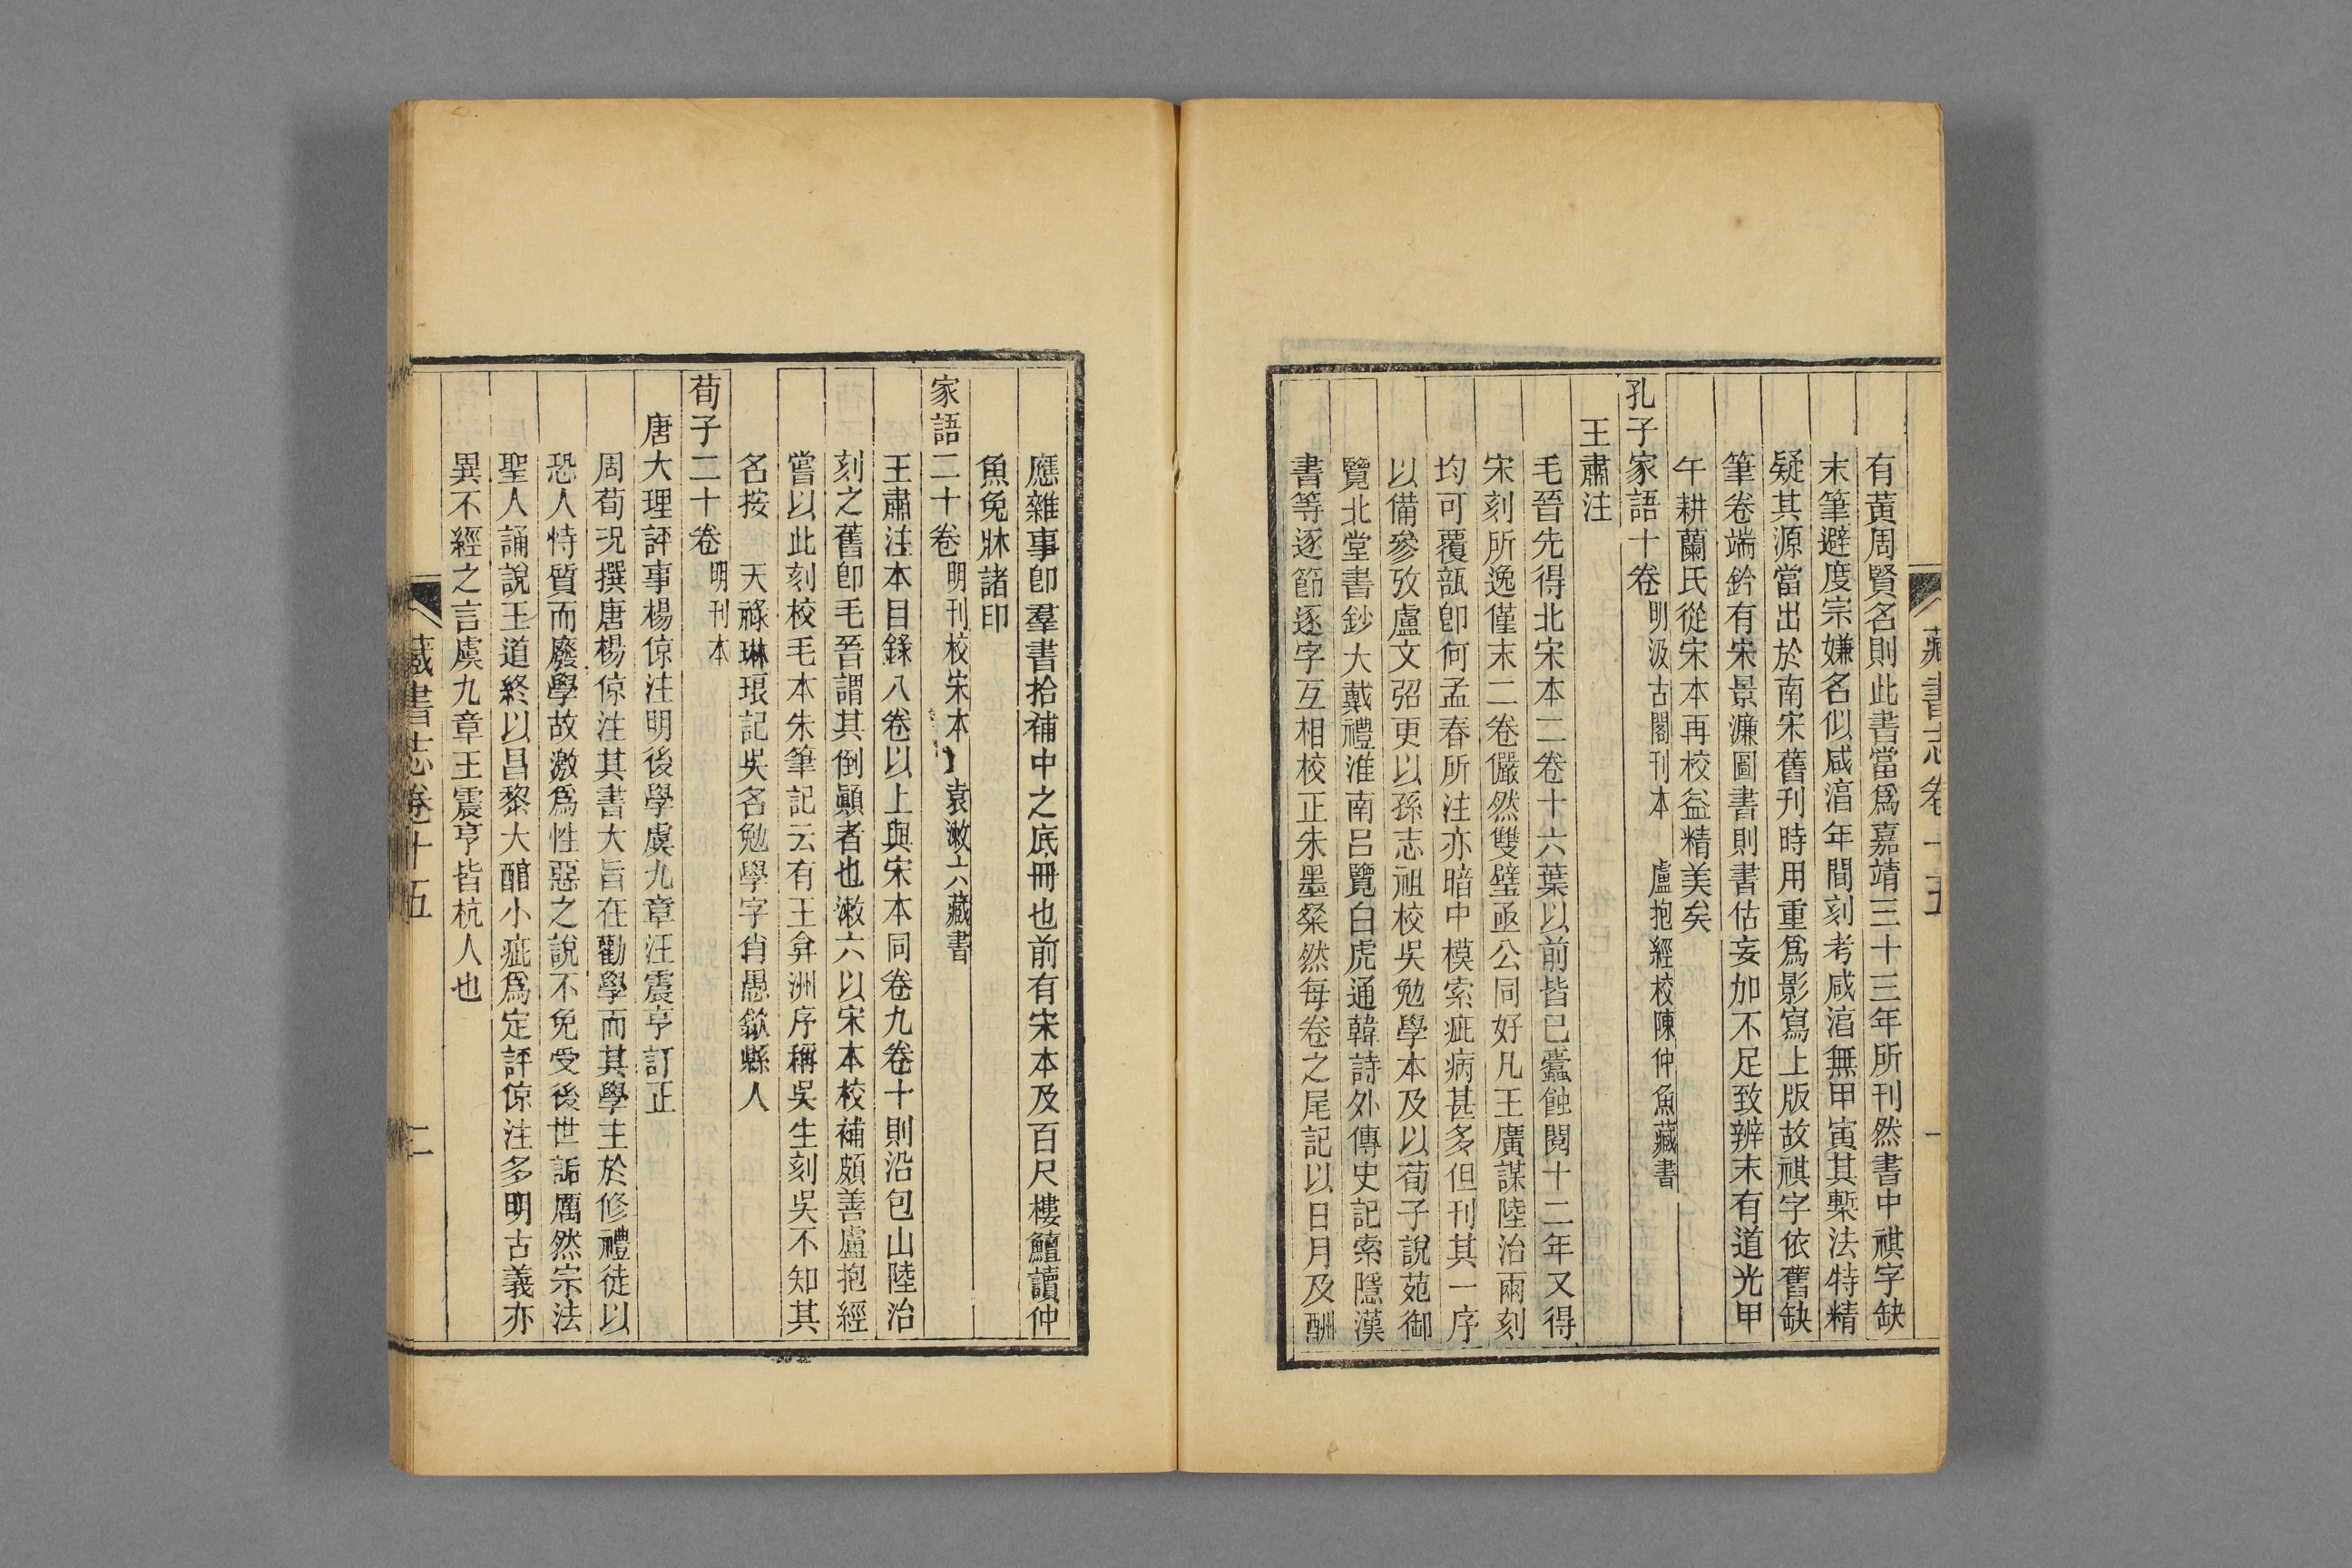 藏書志卷十五
有黃周賢名則此書當爲嘉靖三十三年所刊然書中祺字缺
末筆避度宗嫌名似咸湻年間刻考咸湻無甲寅其槧法特精
疑其源當出於南宋舊刊時用重爲影寫上版故祺字依舊缺
筆卷端鈐有宋景濂圖書則書估妄加不足致辨末有道光甲
午耕蘭氏從宋本再校益精美矣
孔子家語十卷 明汲古閣刊本 盧抱經校陳仲魚藏書
王肅注
毛晉先得北宋本二卷十六葉以前皆已蠹蝕閱十二年又得
宋刻所逸僅末二卷儼然雙璧亟公同好凡王廣謀陸治兩刻
均可覆瓿卽何孟春所注亦暗中模索疵病甚多但刊其一序
以備參攷盧文弨更以孫志祖校吳勉學本及以荀子說苑御
覽北堂書鈔大戴禮淮南呂覽白虎通韓詩外傳史記索隱漢
書等逐節逐字互相校正朱墨粲然每卷之尾記以日月及酬
應雜事卽羣書拾補中之底冊也前有宋本及百尺樓鱣讀仲
魚兔牀諸印
家語二十卷 明刊校宋本 袁漱六藏書
王肅注本目錄八卷以上與宋本同卷九卷十則沿包山陸治
刻之舊卽毛晉謂其倒顚者也漱六以宋本校補頗善盧抱經
嘗以此刻校毛本朱筆記云有王弇洲序稱吳生刻吳不知其
名按 天祿琳琅記吳名勉學字肖愚歙縣人
荀子二十卷 明刊本
唐大理評事楊倞注明後學虞九章汪震亨訂正
周荀況撰唐楊倞注其書大旨在勸學而其學主於修禮徒以
恐人恃質而廢學故激爲性惡之說不免受後世詬厲然宗法
聖人誦說王道終以昌黎大醇小疵爲定評倞注多明古義亦
異不經之言虞九章王震亨皆杭人也
藏書志卷十五
二